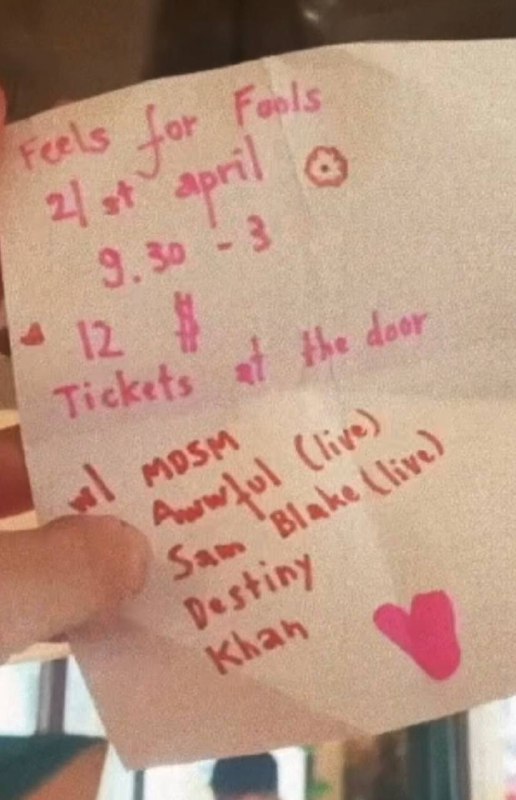 Feels for Fools
21st april
9.30 - 3
12 $
Tickets at the door
w/ MDSM
Awwful (live)
Sam Blake (live)
Destiny
Khan